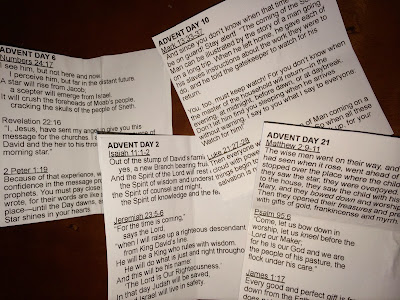 ADVENT DAY 6
Numbers 24:17
I see him, but not here and now.
I perceive him, but far in the distant future.
A star will rise from Jacob;
a scepter will emerge from Israel.
It will crush the foreheads of Moab's people,
cracking the skulls of the people of Sheth.
Revelation 22:16
"I, Jesus, have sent my angel to give you this
message for the churches. I
David and the heir to his throne
morning star."
2 Peter 1:19
Because of that experience, we
confidence in the message pro
prophets. You must pay
wrote, for their words are like
place—until the Day dawns,
Star shines in your hearts
ADVENT DAY 10
Mark 13:33-37
And since you don't know when that time
be on guard! Stay alert! "The coming of the Son of
Man can be illustrated by the story of a man going
on a long trip. When he left home, he gave each of
his slaves instructions about the work they were to
do, and he told the gatekeeper to watch for his
return.
You, too, must keep watch! For you don't know when
the master of the household will return—in the
evening, at midnight, before dawn, or at daybreak.
Don't let him find you sleeping when he arrives
without warning. I say to you what I say to everyone:
Watch for him!
Luke 21:27-28
Then everyone will see the Son of Man coming on a
cloud with power
So when all these
and look up, for your
salvation is
ADVENT DAY 2
Isaiah 11:1-2
Out of the stump of David's family
yes, a new Branch bearing fruit
And the Spirit of the Lord will rest
the Spirit of wisdom and underst
the Spirit of counsel and might,
the Spirit of knowledge and the fe
Jeremiah 23:5-6
"For the time is coming,"
says the Lord,
"when I will raise up a righteous descendant
from King David's line.
He will be a King who rules with wisdom.
He will do what is just and right througho
And this will be his name:
'The Lord Is Our Righteousness.'
In that day Judah will be saved,
Israel will live in safety.
ADVENT DAY 21
Matthew 2:9-11
The wise men went on their way, and
had seen when it rose, went ahead of
stopped over the place where the child
they saw the star, they were overjoyed
to the house, they saw the child with his
Mary, and they bowed down and worship
Then they opened their treasures and pres
with gifts of gold, frankincense and myrrh.
Psalm 95:6
"Come, let us bow down in
worship, let us kneel before the
Lord our Maker;
for he is our God and we are
the people of his pasture, the
flock under his care."
James 1:17
Every good and perfect gift is fr
down from the Fath